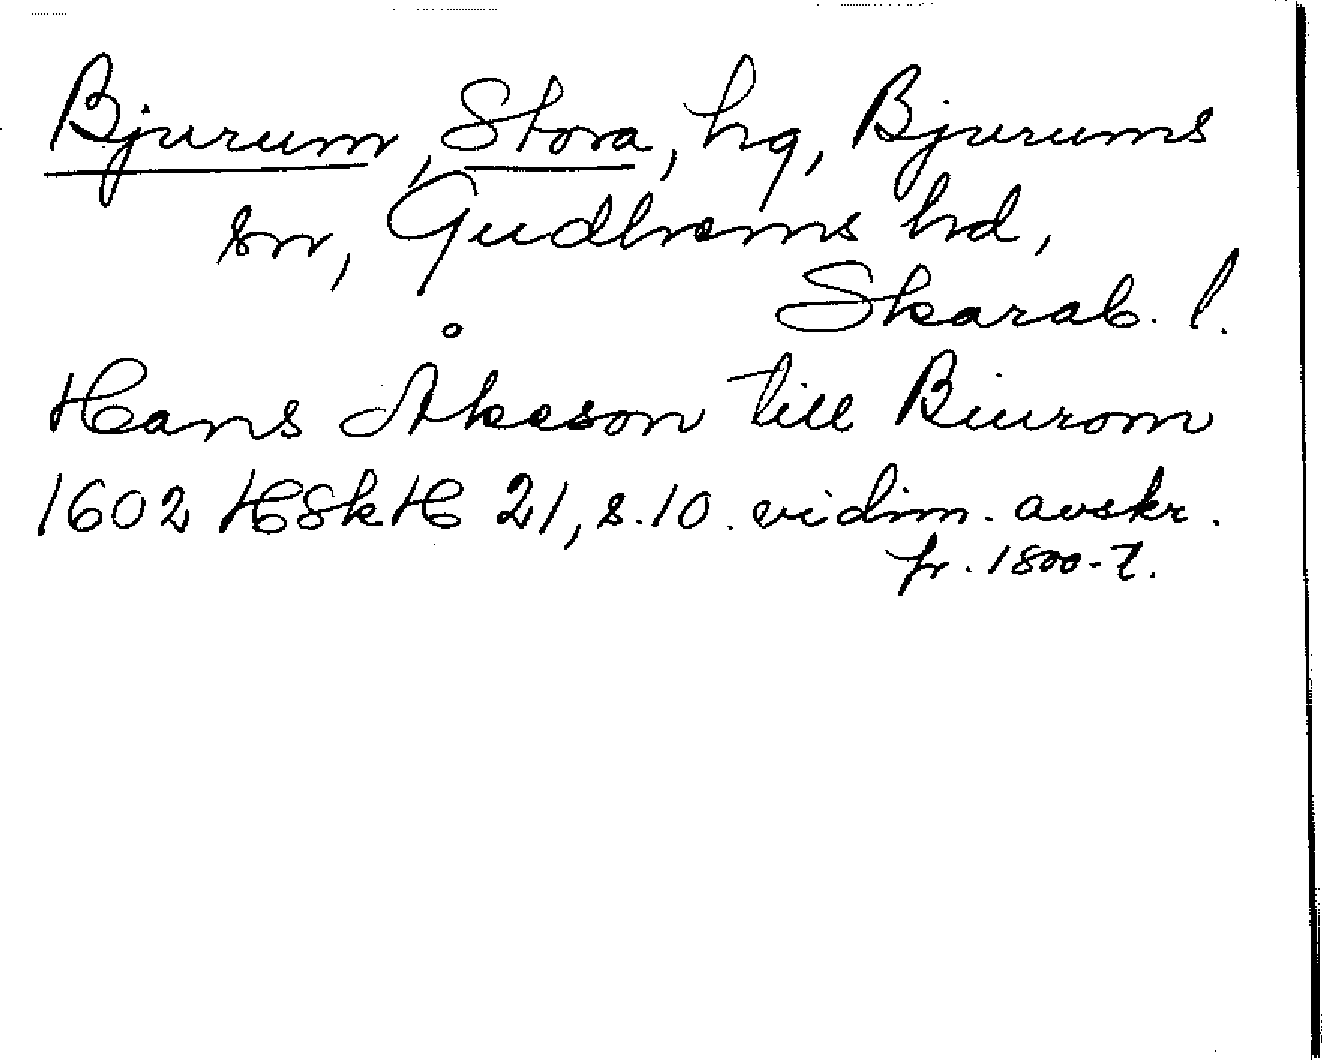 Bjurum, Stora, hg, Bjurums
sn, Gudhems hd,
Skarab. l.
Hans Åkeson till Biurom
1602 HSkH 21, s. 10. vidim. avskr.
fr. 1800-t.